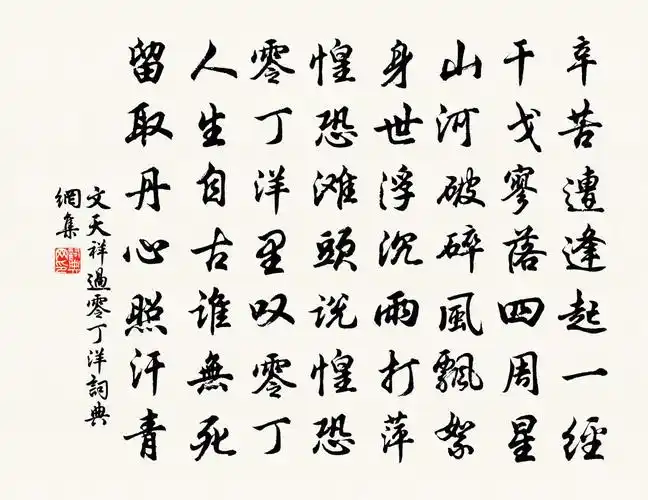 辛苦遭逢起一經
干戈寥落四周星
山河破碎風飄絮
身世浮沉雨打萍
惶恐滩頭说惶恐
零丁洋里叹零丁
人生自古谁無死
留取丹心照汗青
文天祥過零丁洋詞典
網集